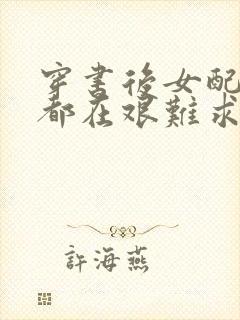 穿書後女配
都在艰難求
許海燕